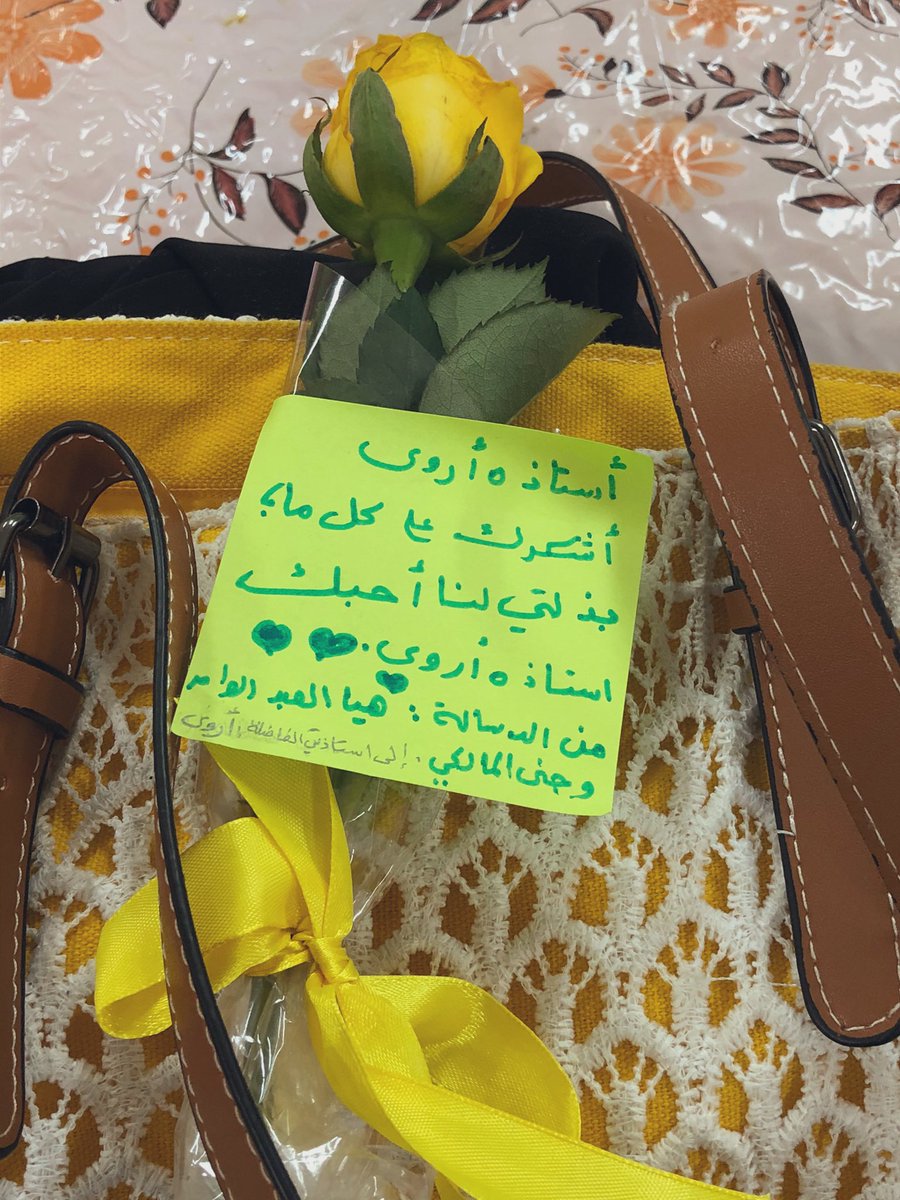 أستاذه أروى
أشكرك على كل ما
بذلتي لنا أحبك
استاذه أروى.
من الرسالة : هيا العبد الواحد
وجنى المالكي.
إلى استاذتي الفاضلة أروى